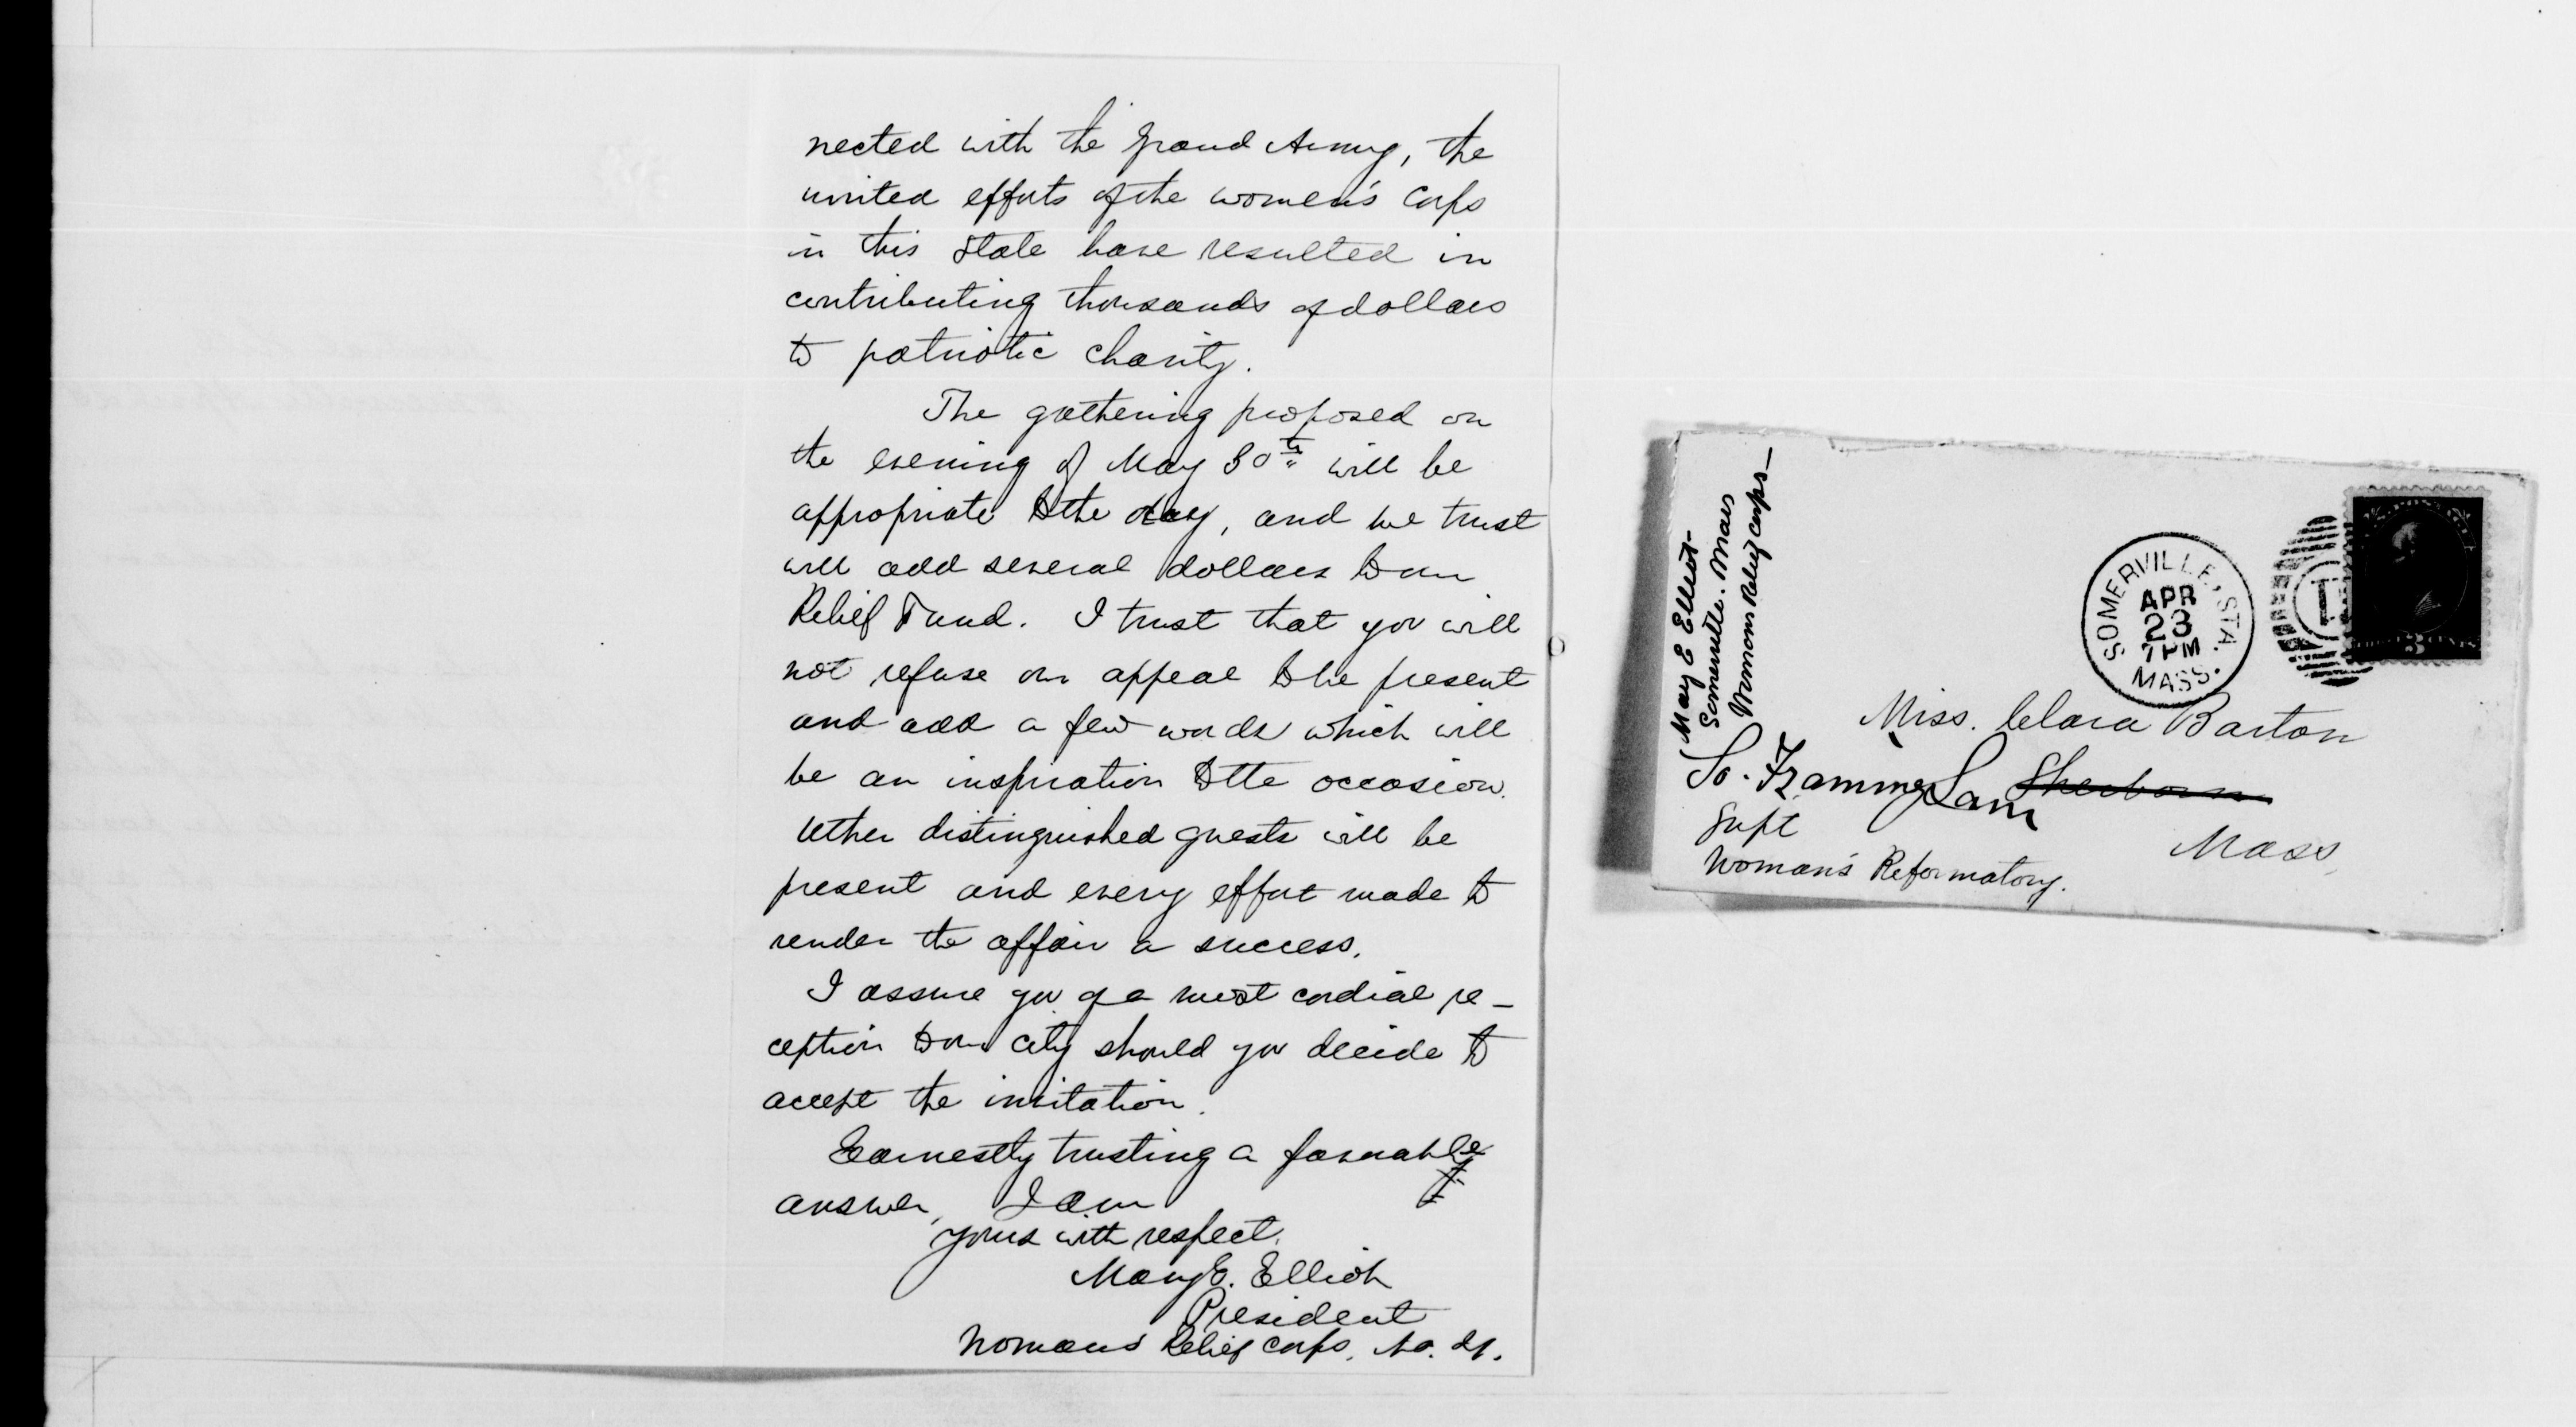 nected with the Grand Army, the
united efforts of the women's Corps
in this State have resulted in
contributing thousands of dollars
to patriotic charity.
The gathering proposed on
the evening of May 30th will be
appropriate to the day, and we trust
will add several dollars to our
Relief Fund. I trust that you will
not refuse our appeal to be present
and add a few words which will
be an inspiration to the occasion.
Other distinguished guests will be
present and every effort made to
render the affair a success.
I assure you of a most cordial re-
ception to our city should you decide to
accept the invitation.
Earnestly trusting a favorable
answer, I am
yours with respect,
Mary E. Elliot
President
Woman's Relief Corps, No. 21.
May E Elliot-
Somerville. Mass
Womans Relief Corps-
SOMERVILLE, STA.
APR
23
7 PM
MASS.
Miss. Clara Barton
So. Framingham Sherborn
Supt
Mass
Woman's Reformatory.